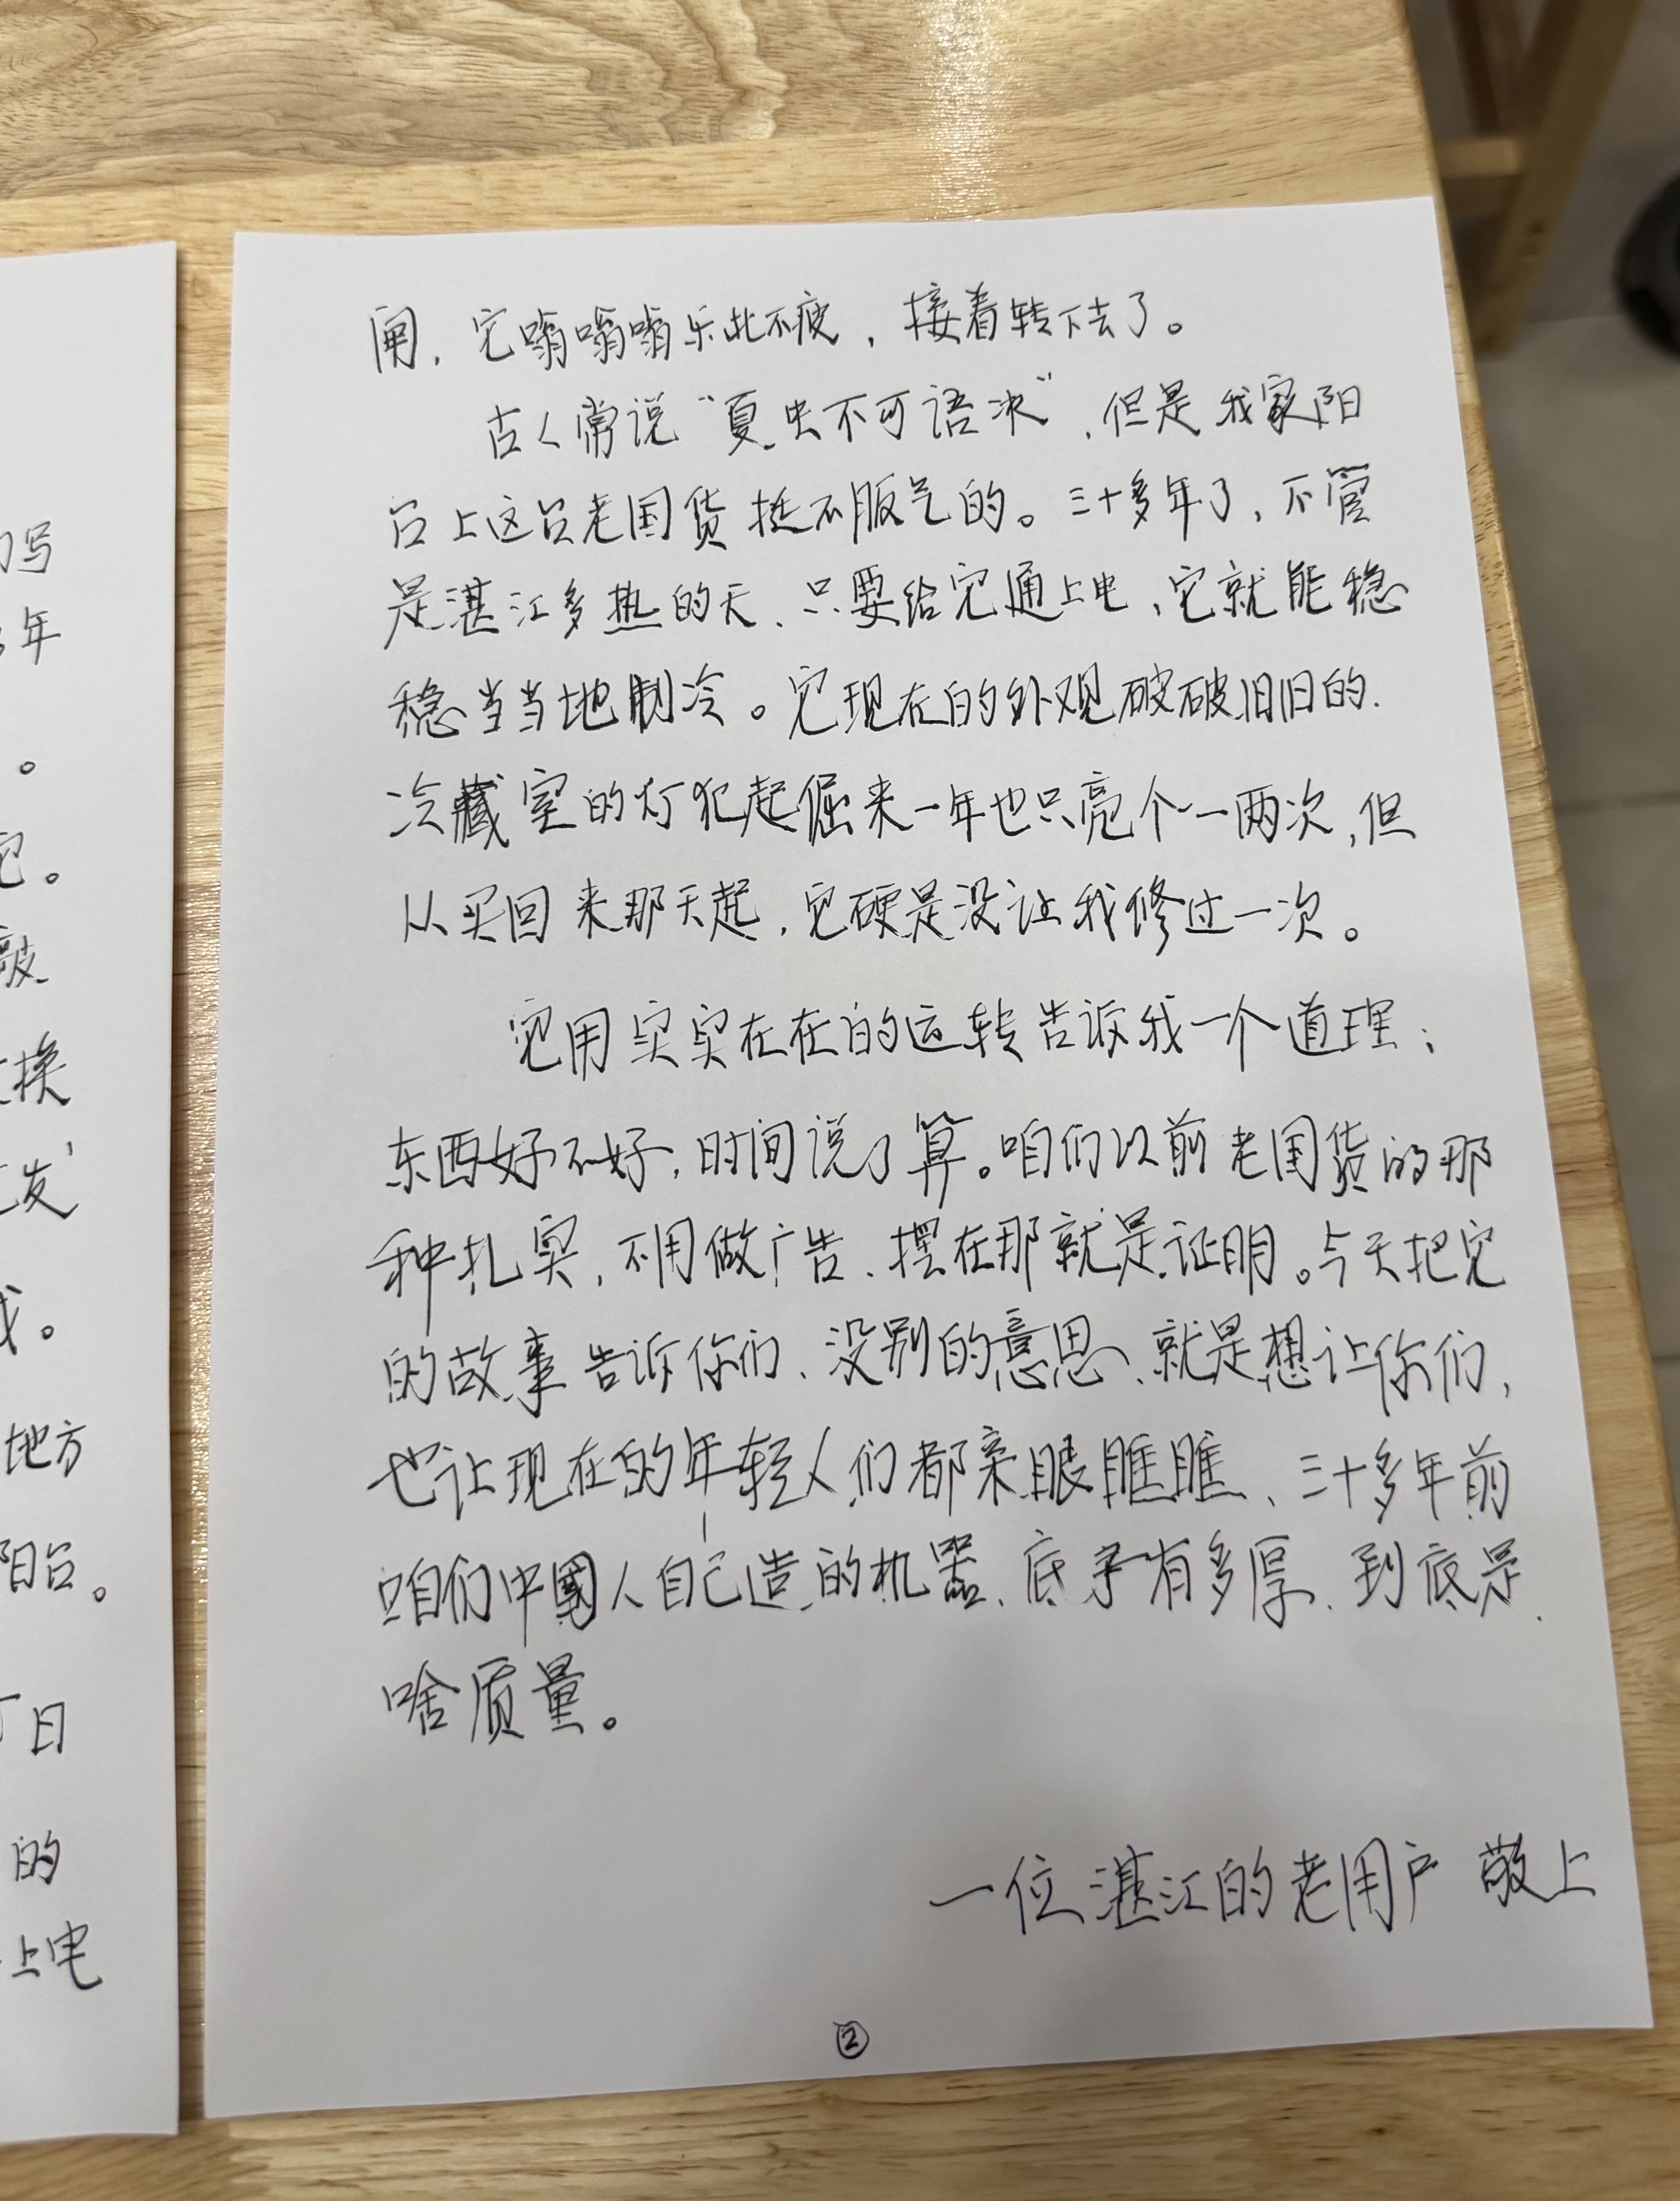 写
年
。
它。
敲
换
发
我。
地方
阳台。
日
的
上电
闸，它嗡嗡嗡乐此不疲，接着转下去了。
古人常说“夏虫不可语冰”，但是我家阳
台上这只老国货挺不服气的。三十多年了，不管
是湛江多热的天、只要给它通上电，它就能稳
稳当当地制冷。它现在的外观破破旧旧的.
冷藏室的灯犯起倔来一年也只亮个一两次，但
从买回来那天起，它硬是没让我修过一次。
它用实实在在的运转告诉我一个道理：
东西好不好，时间说了算。咱们以前老国货的那
种扎实，不用做广告、摆在那就是证明。今天把它
的故事告诉你们、没别的意思、就是想让你们，
也让现在的年轻人们都亲眼瞧瞧、三十多年前
咱们中國人自己造的机器、底子有多厚、到底是
啥质量。
一位湛江的老用户 敬上
②